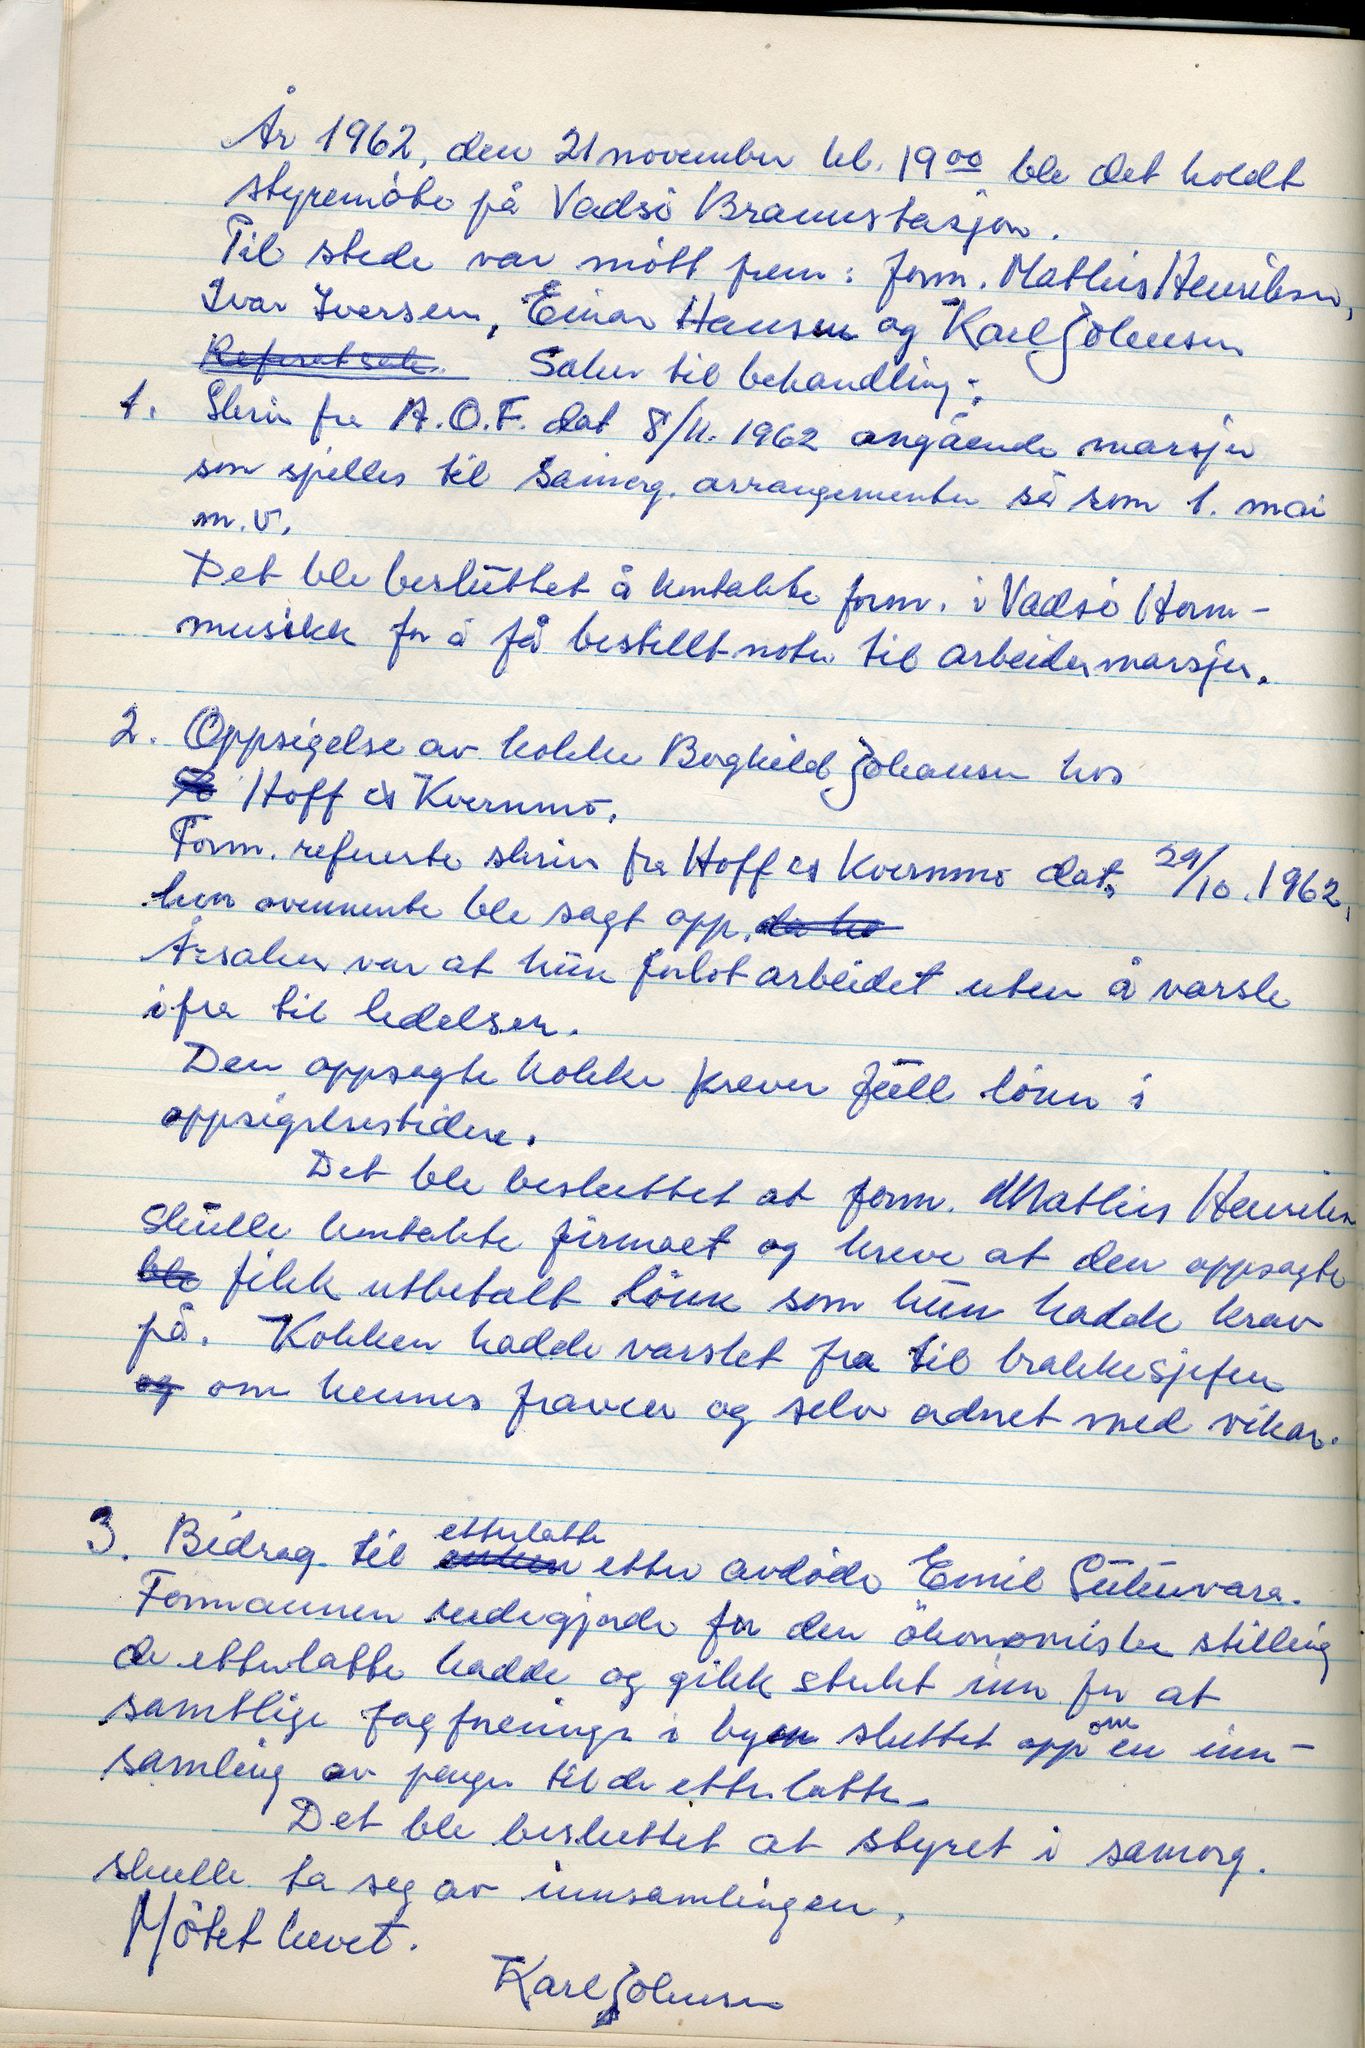 År 1962, den 21 november kl. 19⁰⁰ ble det holdt
styremöte på Vadsö Brannstasjon.
Til stede var mött frem: form. Mathis Henriksen,
Ivar Iversen, Einar Hansen og Karl Johnsen
Referatsak. Saker til behandling:
1. Skriv fra A.O.F. dat 8/11. 1962 angående marsjer
som spilles til Samorg. arrangementer så som 1. mai
m.v.
Det ble besluttet å kontakte form. i Vadsö Horn-
musikk for å få bestillt noter til arbeidermarsjer.
2. Oppsigelse av kokke Borghild Johansen hos
Hoff & Kvernmo.
Form. refererte skriv fra Hoff & Kvernmo dat. 29/10. 1962,
hvor ovennente ble sagt opp. da ho
Årsaken var at hun forlot arbeidet uten å varsle
ifra til ledelsen.
Den oppsagte kokke krever full lönn i
oppsigelsestiden.
Det ble besluttet at form. Mathis Henriksen
skulle kontakte firmaet og kreve at den oppsagte
ble fikk utbetalt lönn som hun hadde krav
på. Kokken hadde varslet fra til brakkesjefen
og om hennes fravær og selv ordnet med vikar.
3. Bidrag til enken etterlatte etter avdöde Emil
Formannen redegjorde for den ökonomiske stilling
de etterlatte hadde og gikk sterkt inn for at
samtlige fagforeninger i byen sluttet opp om en inn-
samling av penger til de etterlatte.
Det ble besluttet at styret i samorg.
skulle ta seg av innsamlingen.
Mötet hevet.
Karl Johnsen